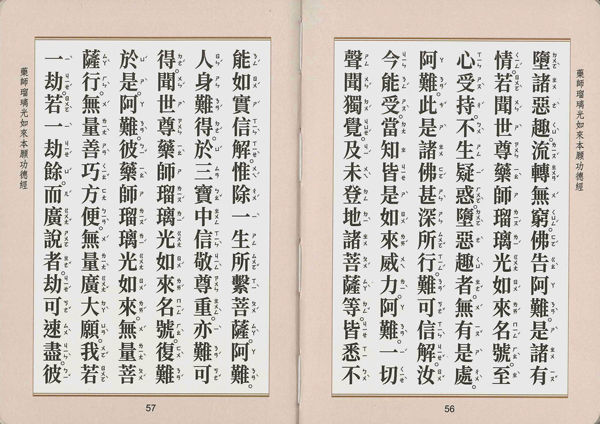 藥師瑠璃光如來本願功德經
墮諸惡趣。流轉無窮。佛告阿難。是諸有
情。若聞世尊藥師瑠璃光如來名號。至
心受持。不生疑惑。墮惡趣者。無有是處。
阿難。此是諸佛甚深所行。難可信解。汝
今能受。當知皆是如來威力。阿難。一切
聲聞獨覺。及未登地諸菩薩等。皆悉不
56
能如實信解。惟除一生所繫菩薩。阿難。
人身難得。於三寶中。信敬尊重。亦難可
得。聞世尊藥師瑠璃光如來名號。復難
於是。阿難。彼藥師瑠璃光如來。無量菩
薩行。無量善巧方便。無量廣大願。我若
一劫。若一劫餘。而廣說者。劫可速盡。彼
藥師瑠璃光如來本願功德經
57